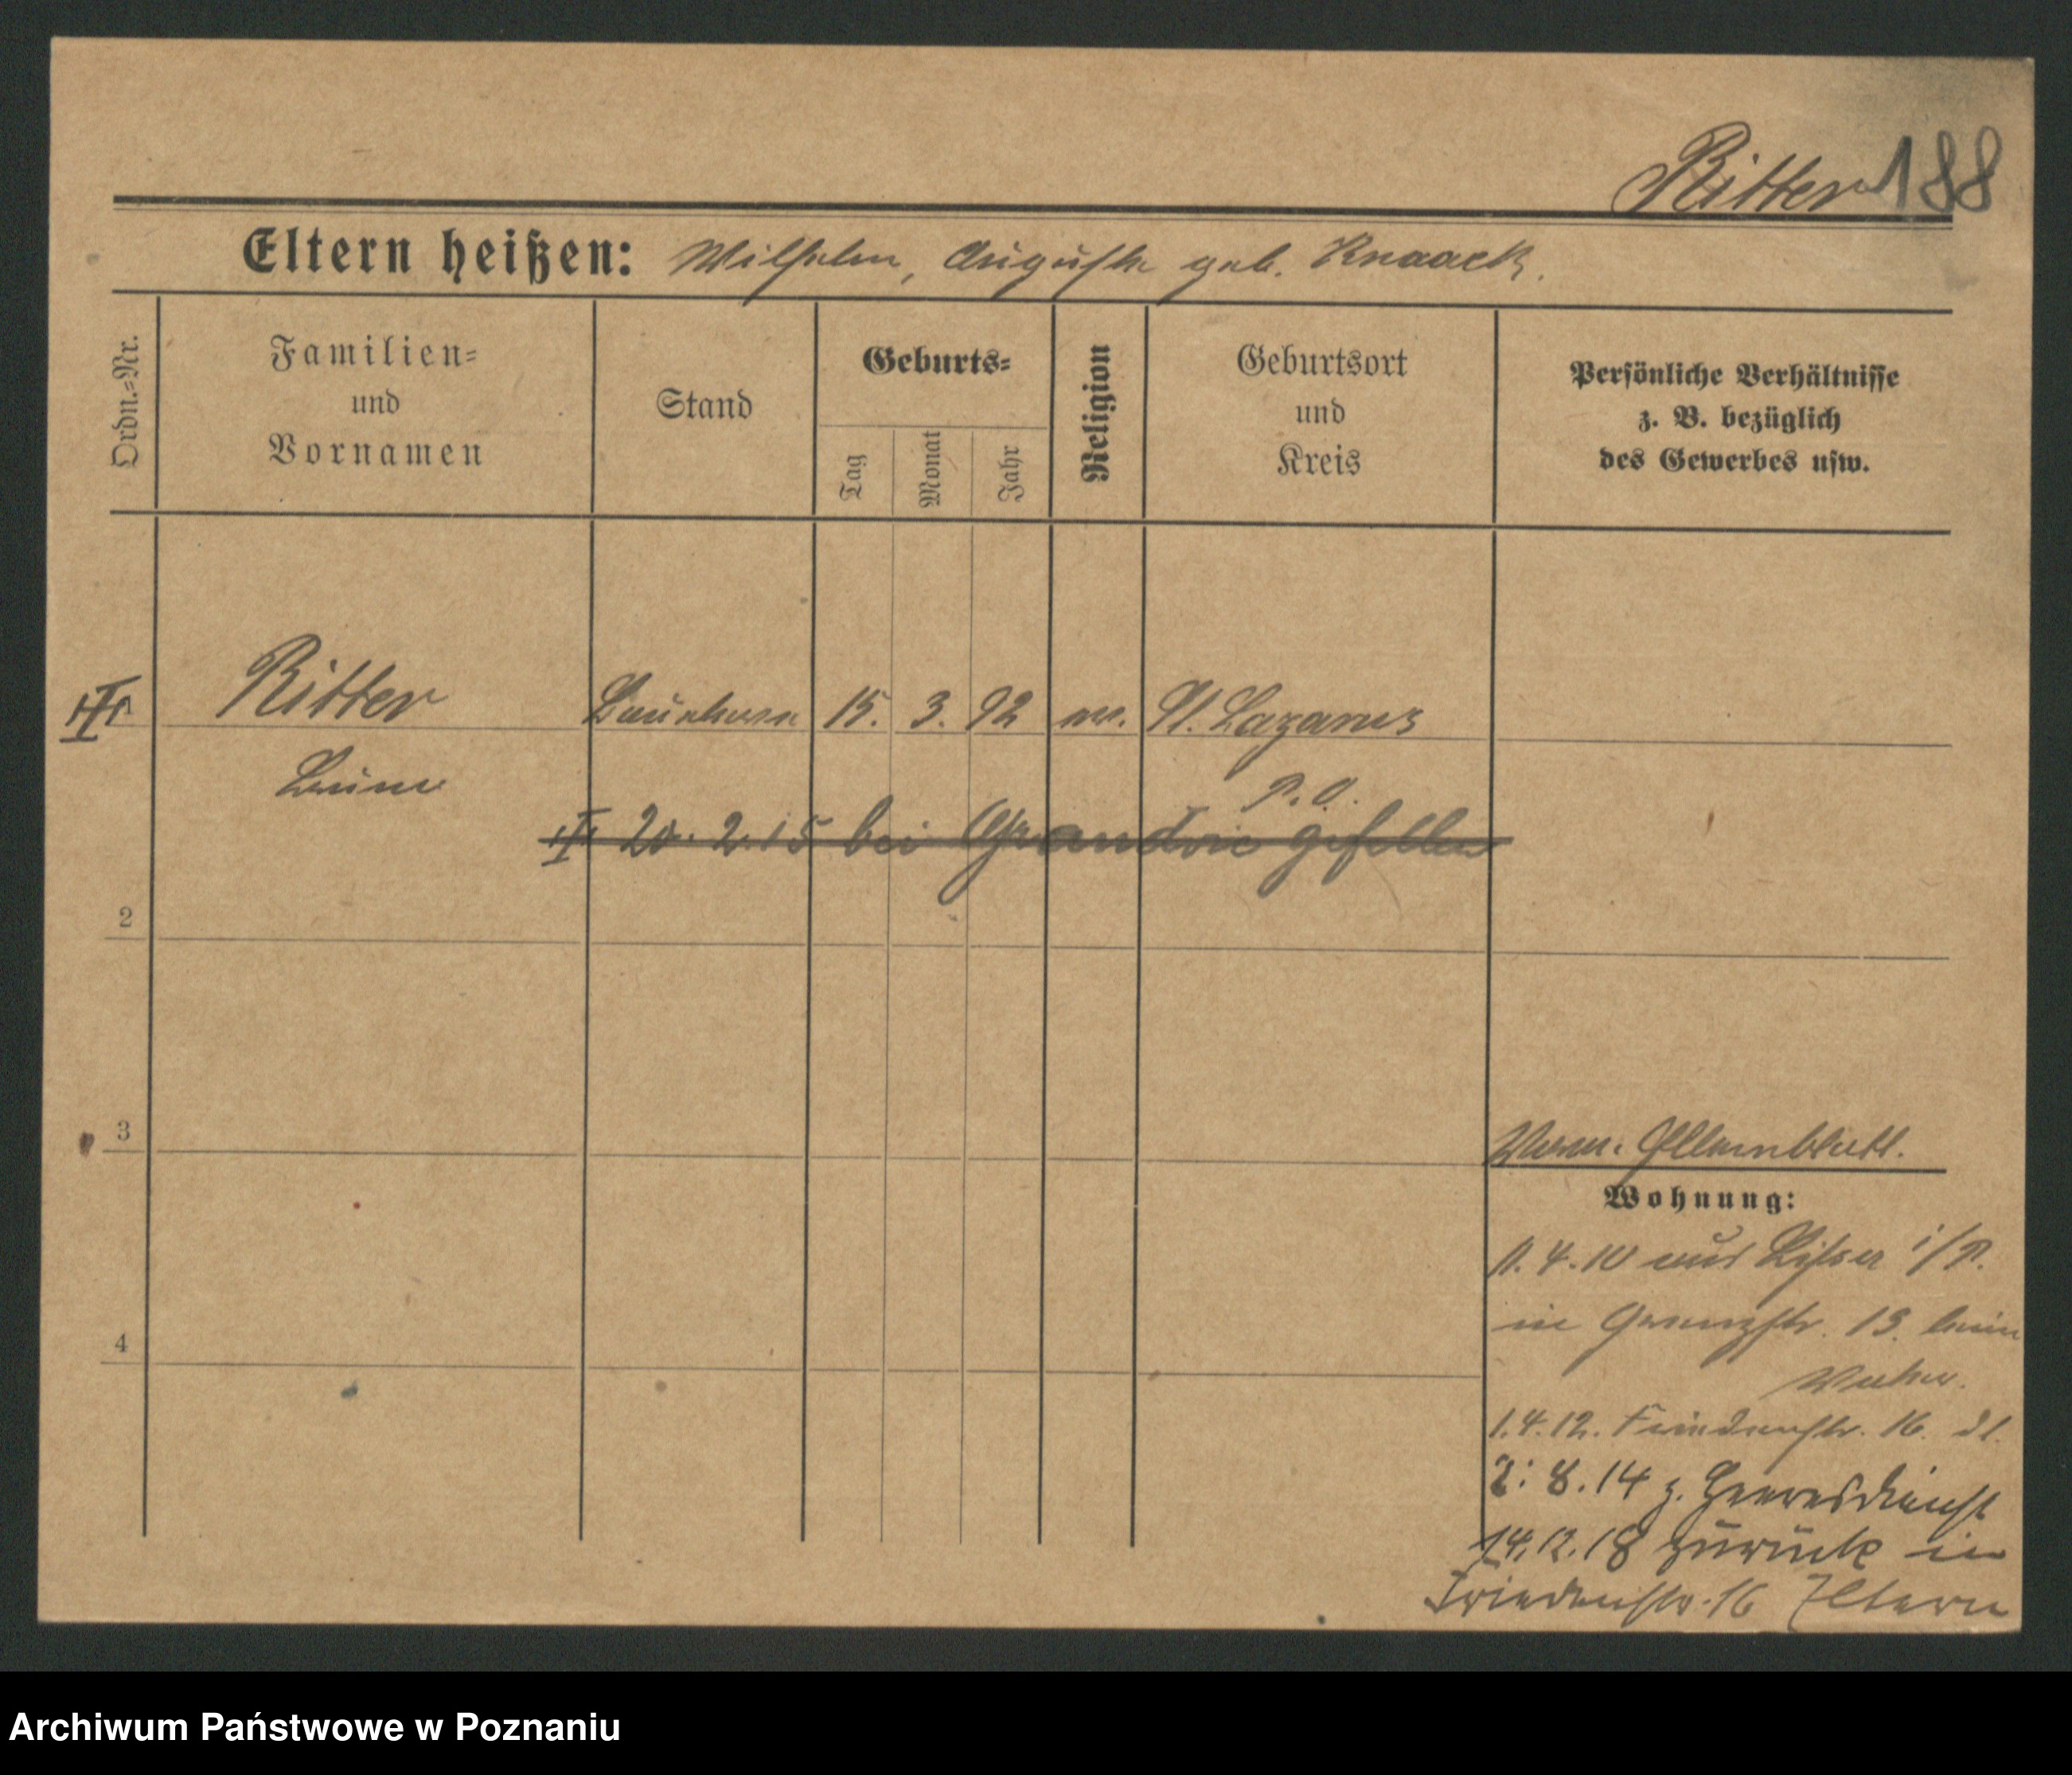 Ritter 188
Eltern heißen: Wilhelm, Auguste geb. Knaack.
Ordn.-Nr.
Familien- und Vornamen
Stand
Geburts-
Tag
Monat
Jahr
Religion
Geburtsort und Kreis
Persönliche Verhältnisse z. B. bezüglich des Gewerbes usw.
Ritter 15. 3. 92 ev. St. Lazarus
P. O.
20. 2. 15 bei gefallen
2
3
Elternblatt.
Wohnung:
4
11. 4. 10 aus i/P.
in 13. beim
Vater.
1. 4. 12. Friedenstr. 16.
2. 8. 14 z. Heeresdienst
14. 12. 18 zurück in
Friedenstr. 16 Eltern
Archiwum Państwowe w Poznaniu